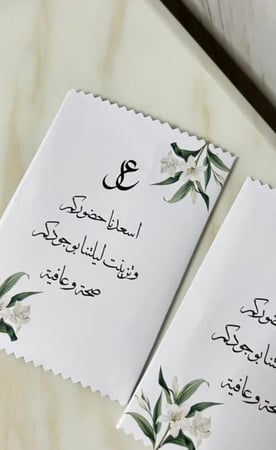 اسعدنا حضوركم
وتزينت ليلتنا بوجودكم
صحة وعافية
حضوركم
بوجودكم
وعافية